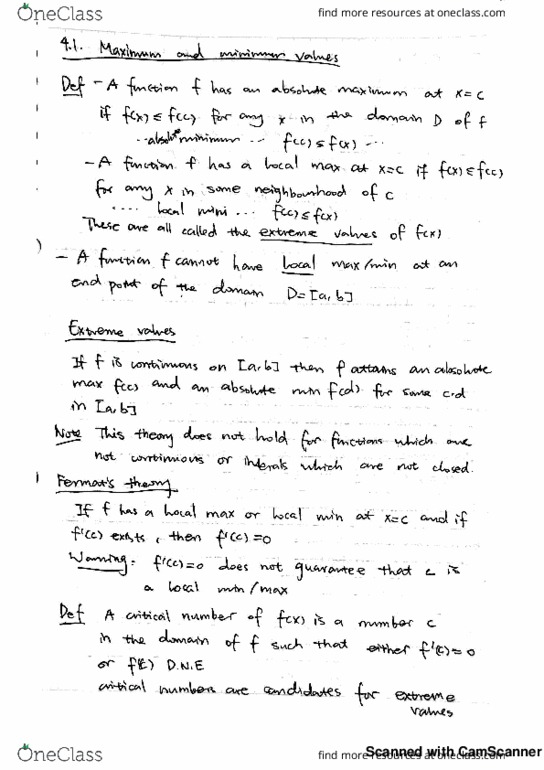 OneClass
find more resources at oneclass.com
4.1. Maximum and minimum values
Def - A function f has an absolute maximum at x=c
if f(x) ≤ f(c) for any x in the domain D of f
... absolute minimum ... f(c) ≤ f(x) ...
- A function f has a local max at x=c if f(x) ≤ f(c)
for any x in some neighbourhood of c
.... local mini ... f(c) ≤ f(x)
These are all called the extreme values of f(x)
- A function f cannot have local max/min at an
end point of the domain D=[a,b]
Extreme values
If f is continuous on [a,b] then f attains an absolute
max f(c) and an absolute min f(d) for some c,d
in [a,b]
Note This theory does not hold for functions which are
not continuous or intervals which are not closed.
Fermat's theory
If f has a local max or local min at x=c and if
f'(c) exists, then f'(c)=0
Warning: f'(c)=0 does not guarantee that c is
a local min/max
Def A critical number of f(x) is a number c
in the domain of f such that either f'(c)=0
or f'(c) D.N.E
critical numbers are candidates for extreme
values
OneClass
find more resources at oneclass.com
Scanned with CamScanner